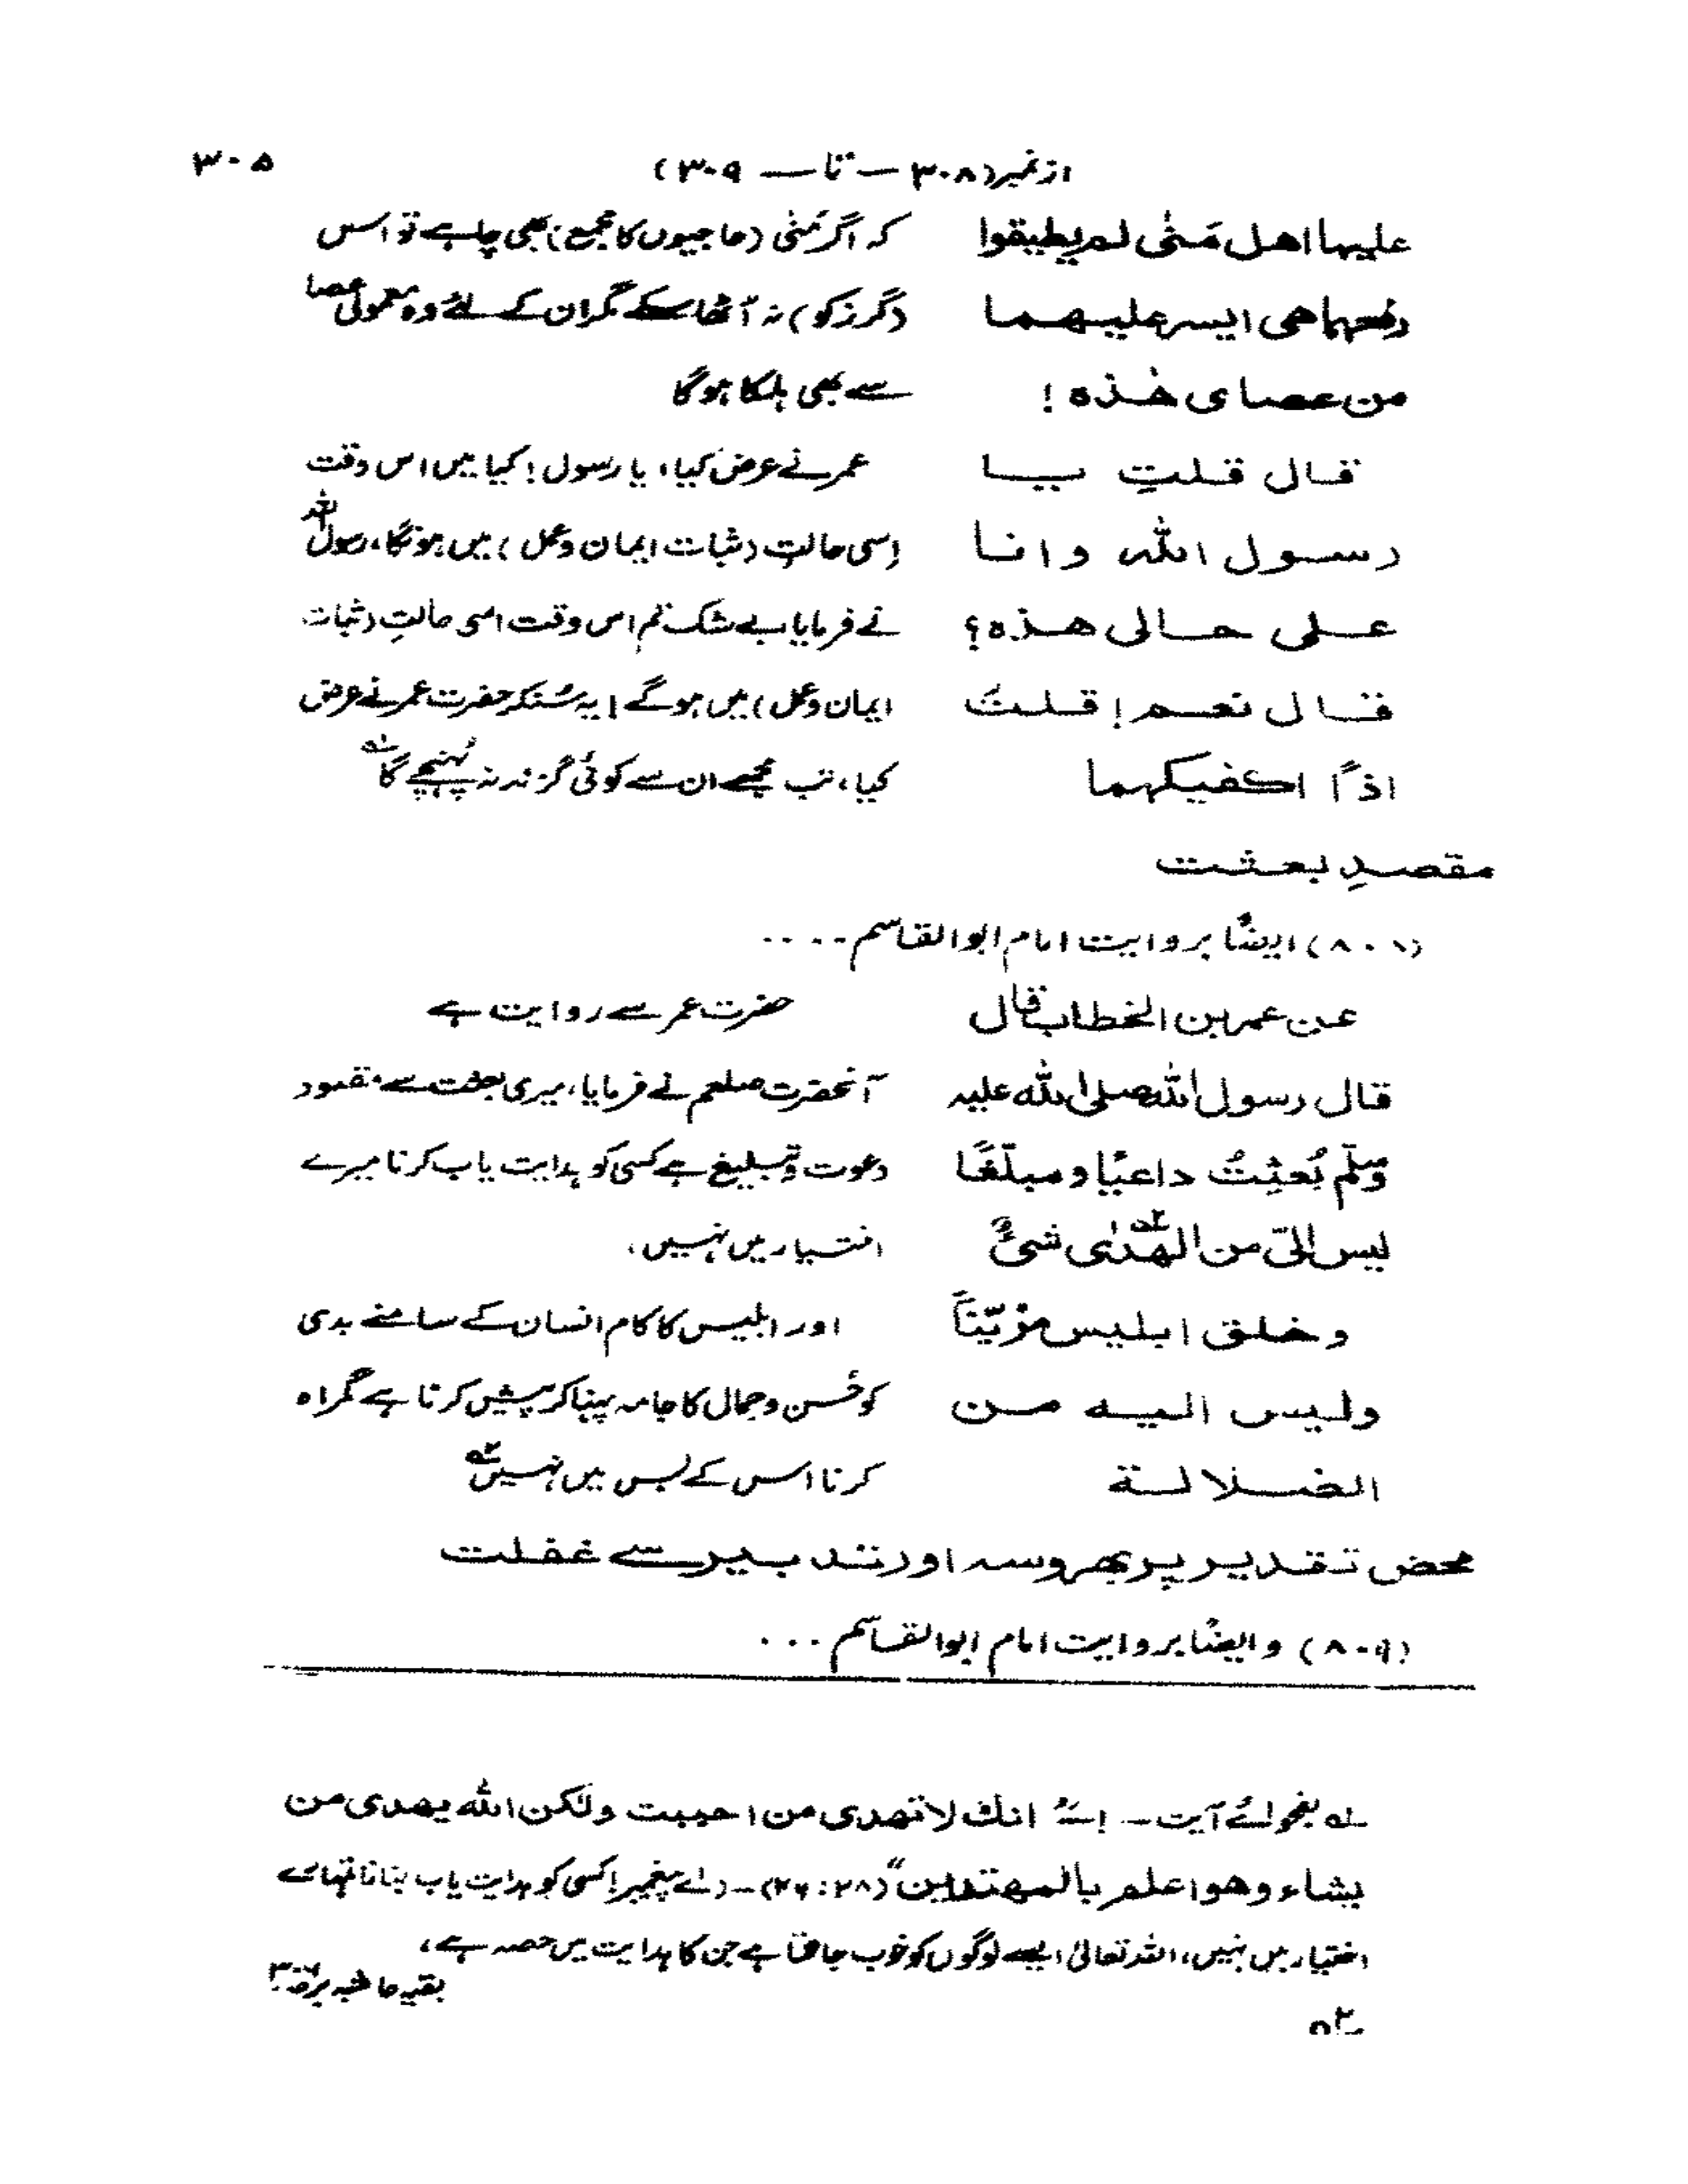 از نمبر (۳۰۸ — تا — ۳۰۹) ۳۰۵
علیہا اھل مَنٰی لم یطیقوا کہ اگر مَنٰی (حاجیوں کا مجمع) بھی چاہے تو اس
رفعہا ھی ایسر علیھما (گرز کو) نہ اٹھا سکے مگر ان کے لئے وہ معمولی عصا
من عصای ھٰذہ ! سے بھی ہلکا ہوگا
قال قلت یا عمر نے عرض کیا، یا رسول! کیا میں اس وقت
رسول اللہ وانا اِسی حالتِ (ثبات ایمان و عمل) میں ہونگا، رسول اللہ
علی حالی ھذہ؟ نے فرمایا بے شک تم اس وقت اسی حالتِ (ثبات
قال نعم! قلتَ ایمان و عمل) میں ہوگے! یہ سُنکر حضرت عمر نے عرض
اذًا اکفیکہما کیا، تب مجھے ان سے کوئی گزند نہ پُہنچے گا
مقصدِ بعثت
(۸۰۸) ایضًا بروایت امام ابوالقاسم ....
عن عمر بن الخطاب قال حضرت عمر سے روایت ہے
قال رسول اللہ صلی اللہ علیہ آنحضرت صلعم نے فرمایا، میری بعثت سے مقصود
وسلّم بُعثِتُ داعیًا و مبلّغًا دعوت و تبلیغ ہے کسی کو ہدایت یاب کرنا میرے
لیس الیّ من الھدٰی شیٌٔ اختیار میں نہیں،
و خلق ابلیس مزیّنًا اور ابلیس کا کام انسان کے سامنے بدی
ولیس الیہ من کو حُسن و جمال کا جامہ پہنا کر پیش کرنا ہے گمراہ
الضلالۃ کرنا اس کے بس میں نہیں
محض تقدیر پر بھروسہ اور تدبیر سے غفلت
(۸۰۹) و ایضًا بروایت امام ابوالقاسم ...
لہ بفحوائے آیت — انک لا تھدی من احببت ولکن اللہ یھدی من
یشاء وھو اعلم بالمھتدین" (۲۸ : ۲۶) — (اے پیغمبر! کسی کو ہدایت یاب بنانا تمہارے
اختیار میں نہیں، اللہ تعالیٰ ایسے لوگوں کو خوب جانتا ہے جن کا ہدایت میں حصہ ہے،
بقیہ حاشیہ بر ۳۰۶
۲ہ